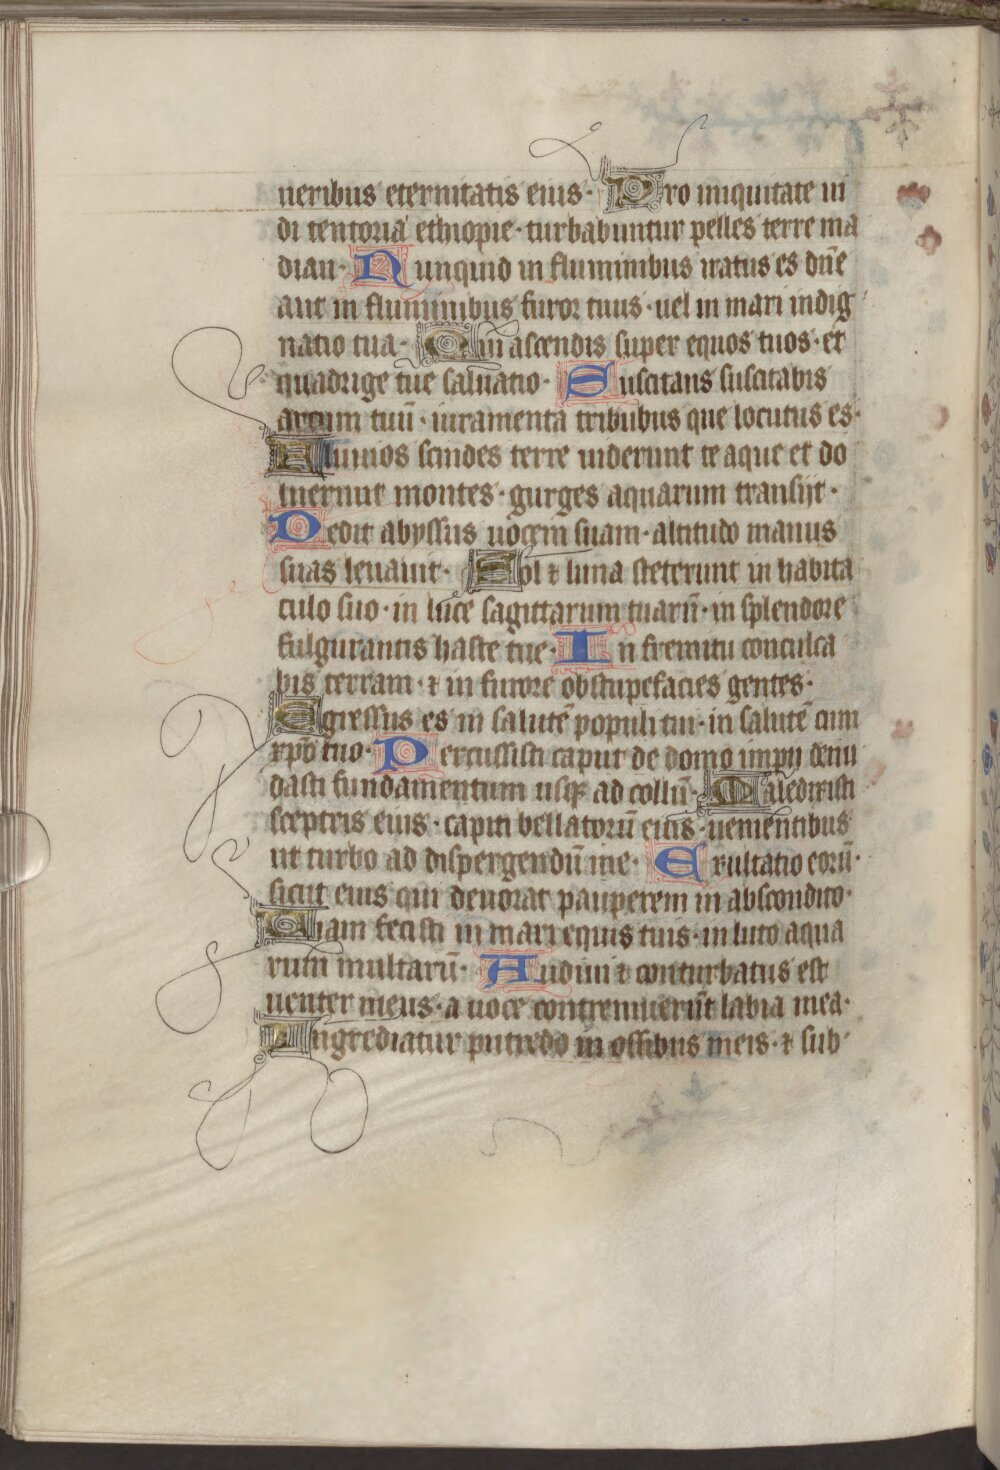 neribus eternitatis eius· Pro iniquitate ui
di tentoria ethiopie· turbabuntur pelles terre ma
dian· Nunquid in fluminibus iratus es dn̄e
aut in fluminibus furor tuus· uel in mari indig
natio tua· Qui ascendis super equos tuos· et
quadrige tue saluatio· Suscitans suscitabis
arcum tuū· iuramenta tribubus que locutus es·
Fluuios scindes terre uiderunt te aque et do
luerunt montes· gurges aquarum transijt·
Dedit abyssus uocem suam· altitudo manus
suas leuauit· Sol ⁊ luna steterunt in habita
culo suo· in luce sagittarum tuarū· in splendore
fulgurantis haste tue· In fremitu conculca
bis terram· ⁊ in furore obstupefacies gentes·
Egressus es in salutē populi tui· in salutē cum
xp̄o tuo· Percussisti caput de domo impij denu
dasti fundamentum usq; ad collū· Maledixisti
sceptris eius· capiti bellatorū eius· uenientibus
ut turbo ad dispergendū me· Exultatio eorū·
sicut eius qui deuorat pauperem in abscondito·
Uiam fecisti in mari equis tuis· in luto aqua
rum multarū· Audiui ⁊ conturbatus est
uenter meus· a uoce contremuerūt labia mea·
Ingrediatur putredo in ossibus meis· ⁊ sub